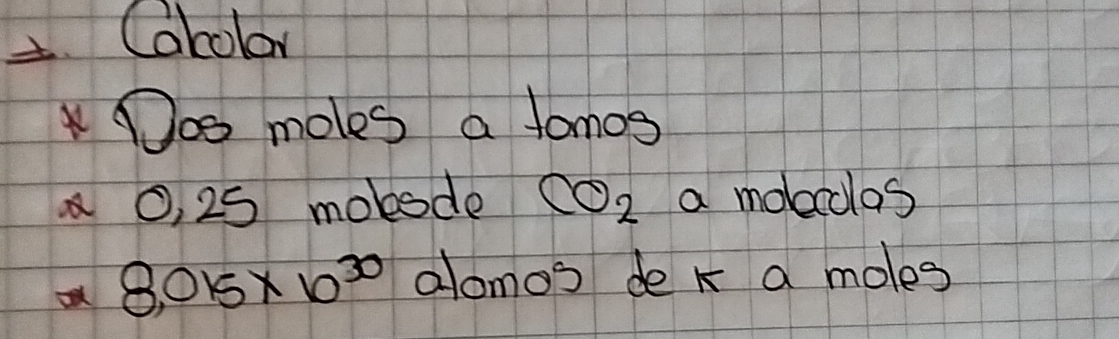 → Calcular
* Dos moles a tomos
* 0,25 molesde CO₂ a moleculas
* 8,015 x 10³⁰ atomos de K a moles